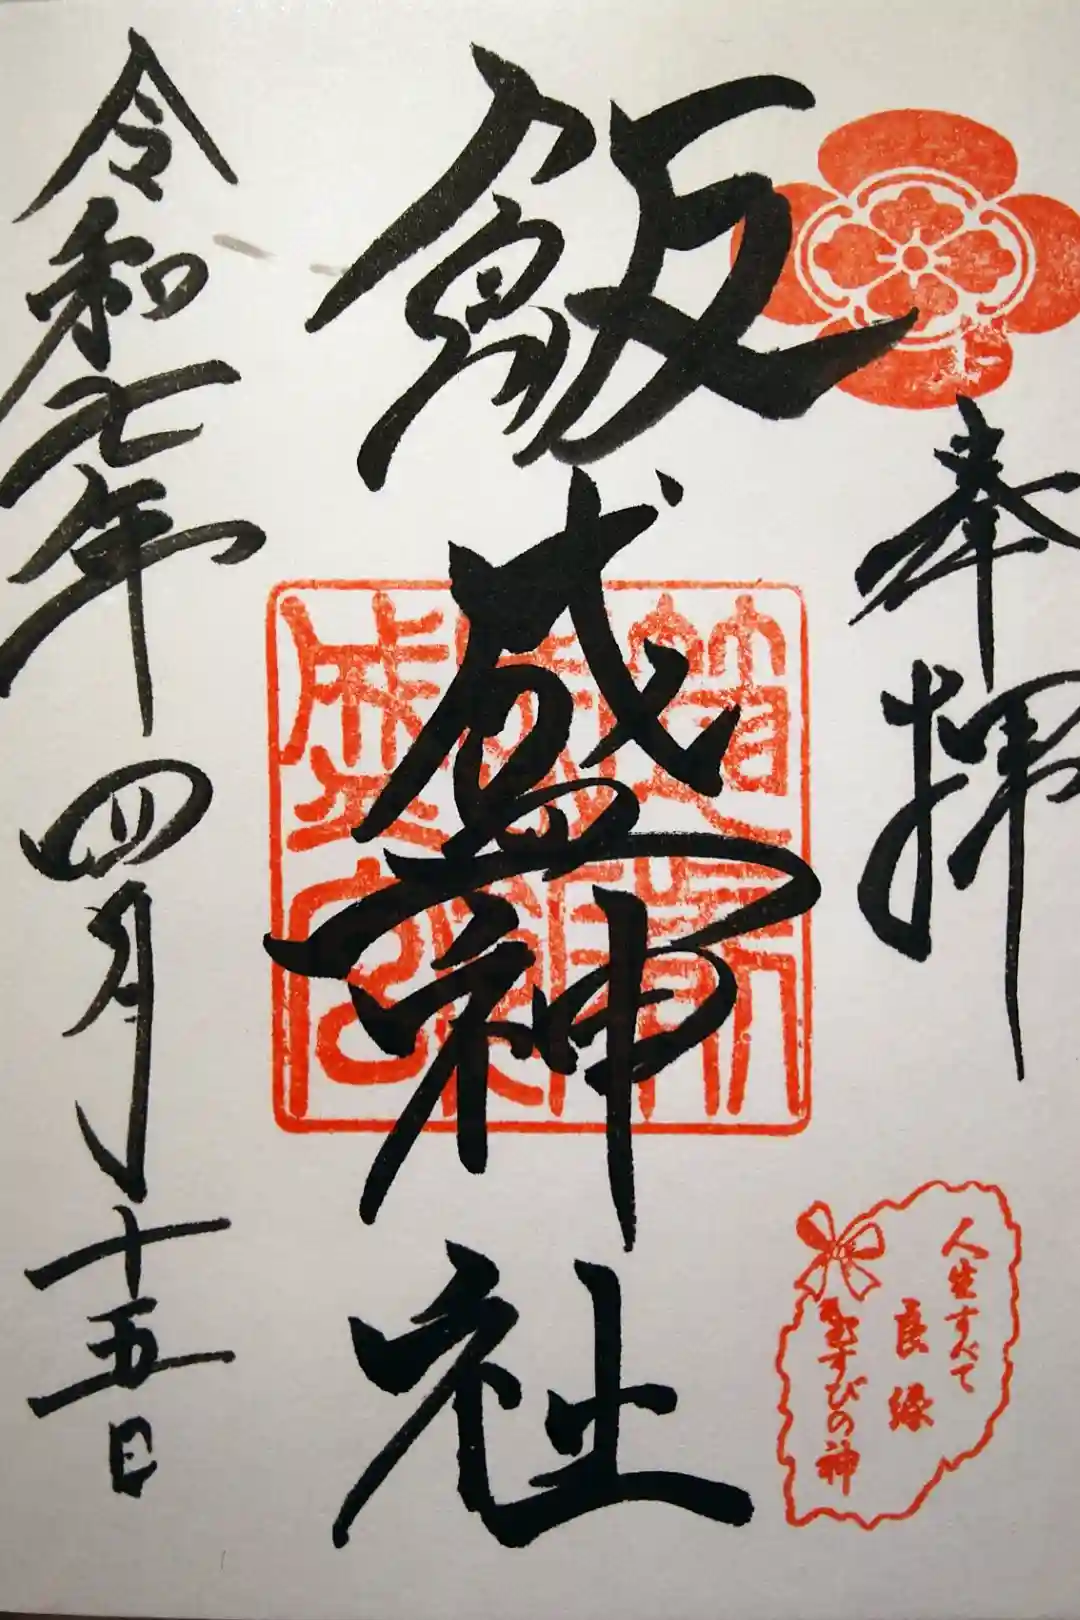 奉拝
飯盛神社
令和七年四月十五日
人生すべて
良縁
むすびの神